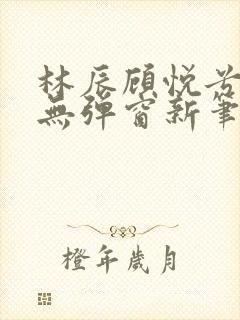 林辰顾悦兮
無彈窗新筆
橙年歲月